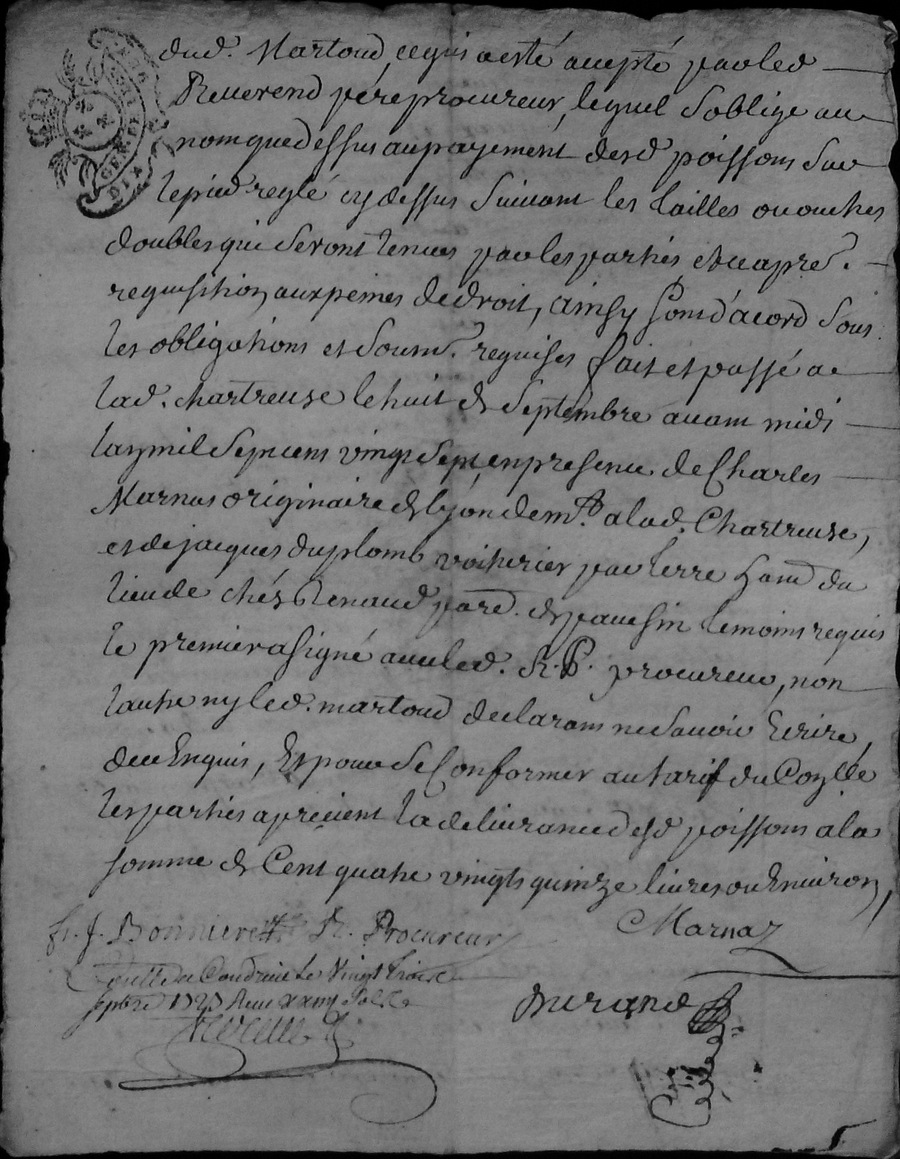 dud. Martoud, ce qui a esté accepté par led
Reverend pére procureur, lequel s'oblige au
nom que dessus au payement desd poissons sur
le pied reglé cy dessus suivant les tailles ou ouches
doubles qui seront tenues par les parties, et
requisition, aux peines de droit, ainsy sont d'acord sous
les obligations et soum. requises fait et passé a
lad. chartreuse le huit de Septembre avant midi
l'an mil sept cens vingt sept en presence de Charles
Marnas originaire de Lyon dem.t a lad. Chartreuse,
et de jacques duplomb voiturier par terre du
lieu de chés Renaud par. de pavesin temoins requis
le premier a signé avec led. R. P. procureur, non
l'autre ny led. martoud declarant ne savoir Ecrire,
de ce Enquis, Et pour se Conformer au tarif du
les parties aprecient la delivrance desd poissons a la
somme de Cent quatre vingts quinze livres ou Environ,
fr. J. P. Procureur
Marnaz
a Condrieu le Vingt trois
sepbre 1727 Receu
Durand